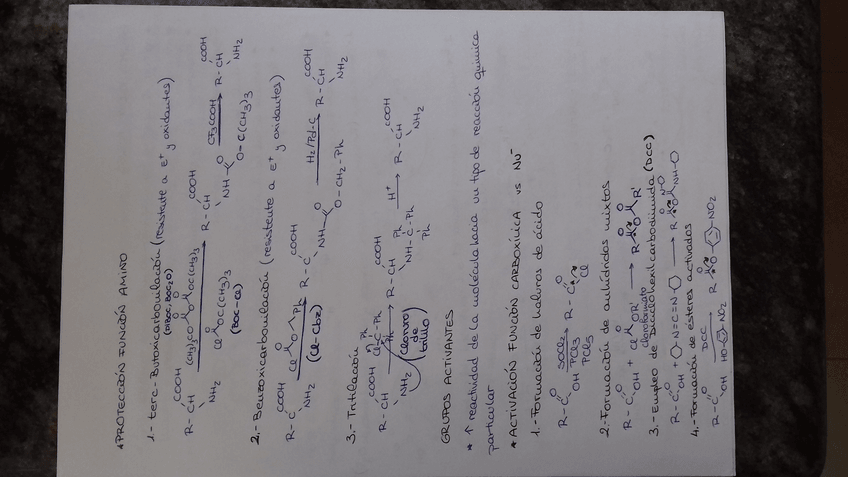 * PROTECCIÓN FUNCIÓN AMINO
1.- terc-Butoxicarbonilación (resistente a E⁺ y oxidantes)
(DIBOC, BOC₂O)
R-CH COOH NH₂
(CH₃)₃CO O O O OC(CH₃)₃
Cl O OC(CH₃)₃
(BOC-Cl)
R-CH COOH NH O O-C(CH₃)₃
CF₃COOH
R-CH COOH NH₂
2.- Benzoxicarbonilación (resistente a E⁺ y oxidantes)
R-C COOH NH₂
Cl O O Ph
(Cl-Cbz)
R-C COOH NH O O-CH₂-Ph
H₂/Pd-C
R-CH COOH NH₂
3.- Tritilación
R-CH COOH NH₂
Cl-C-Ph Ph Ph
(cloruro de tritilo)
R-CH COOH NH-C-Ph Ph Ph
H⁺
R-CH COOH NH₂
GRUPOS ACTIVANTES
* ↑ reactividad de la molécula hacia un tipo de reacción química
particular
* ACTIVACIÓN FUNCIÓN CARBOXÍLICA vs Nu⁻
1.- Formación de haluros de ácido
R-C O OH
SOCl₂
PCl₃
PCl₅
R-C O Cl
2.- Formación de anhídridos mixtos
R-C O OH + Cl O OR'
cloroformato
R O O O R'
3.- Empleo de Diciclohexilcarbodiimida (DCC)
R-C O OH + N=C=N
R O O N NH
4.- Formación de ésteres activados
R-C O OH
DCC
HO NO₂
R O O NO₂